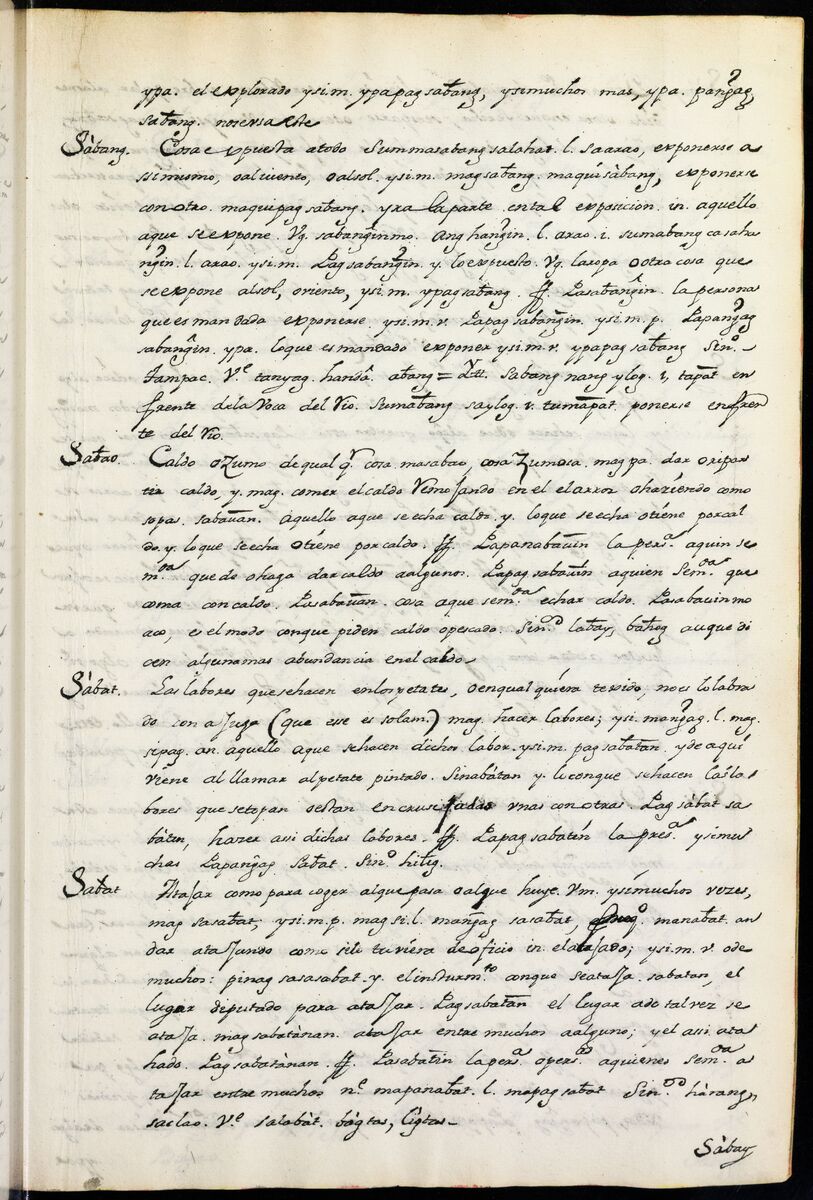 ypa. el explorado ysi.m. ypapag sabang, ysimuchos mas, ypa. pangag
sabang. nose usa este
Sàbang. Cosa expuesta atodo Summasabang salahat. l. saarao, exponerse a
ssimismo, oalviento, oalsol. ysi.m. magsabang. maquisàbang, exponerse
con otro. maquipag sabang. yra la parte en tal exposicion. in. aquello
aque se expone. Vg. sabanginmo. Ang hangin. l. arao. i. sumabang ca sa ha
ngin. l. arao. ysi.m. Pag sabangin. y. lo expuesto. Vg. la ropa o otra cosa que
se expone al sol, oriento, ysi.m. ypagsabang. ff. Pasabangin. la persona
que es mandada exponerse. ysi.m.r. Papag sabangin. ysi.m.p. Papangag
sabangin. ypa. lo que es mandado exponer ysi.m.r. ypapag sabang Sin.º
Tampac. V.e tanyag. handâ. abang = Ytt. Sabang nang ylog. i, tapat en
frente dela Voca del Rio. Sumabang saylog. i. tumapat. ponerse enfren
te del rio.
Sabao. Caldo o Zumo de qual q.r cosa. masabao, cosa Zumosa. mag pa. dar o repar
tir caldo, y. mag. comer el caldo Remojando en el el arroz o haziendo como
sopas. sabauan. aquello aque se echa caldo. y. lo que se echa otiene por cal
do. y. lo que se echa o tiene por caldo. ff. Papanabauin la pers.a aquin se
m.da que de o haga dar caldo aalgunos. Papag sabauin aquien Sem.da que
coma con caldo. Pasabauan. cosa a que sem.da echar caldo. Pasabauin mo
aco, es el modo conque piden caldo opescado. Sin.os labay, bahog auque di
cen alguna mas abundancia en el caldo.
Sàbat. Las labores que se hacen enlos petates, oenqual quiera texido, no es lo labra
do con aguja (que esse es solam.te) mag. hacer labores; ysi. mangag. l. mag.
sipag. an. aquello aque se hacen dichas labor. ysi.m. pag sabatan. y de aqui
viene al llamar al petate pintado. Sinabàtan y. lo conque se hacen las la
bores que se topan oestan encrusejadas unas con otras. Pag sàbat sa
bàtin, hazer assi dichas labores. ff. Papag sabatin la pers.a ysi mu
chas Papangag Sabat. Sin.º hilig.
Sabat Atajar como para coger alque pasa oalque huye. Vm. ysimuchos vezes,
mag sasabat, ysi.m.p. magsi. l. mangag sasabat, manabat. an
dar atajando como si lo tuviera de oficio in. el atajado; ysi.m.r. o de
muchos: pinag sasasabat. y. el instrum.to conque se ataja. sabatan, el
lugar diputado para atajar. Pagsabatan el lugar ado tal vez se
ataja. magsabatànan. atajar entre muchos aalguno; y el assi ata
hado. Pag sabatànan. ff. Pasabatin la pers.a opers.as aquienes Sem.da a
tajar entre muchos n.e mapanabat. l. mapag sabat Sin.os hàrang,
saclao. V.e salabàt. bàgtas, ligtas.
Sàbay